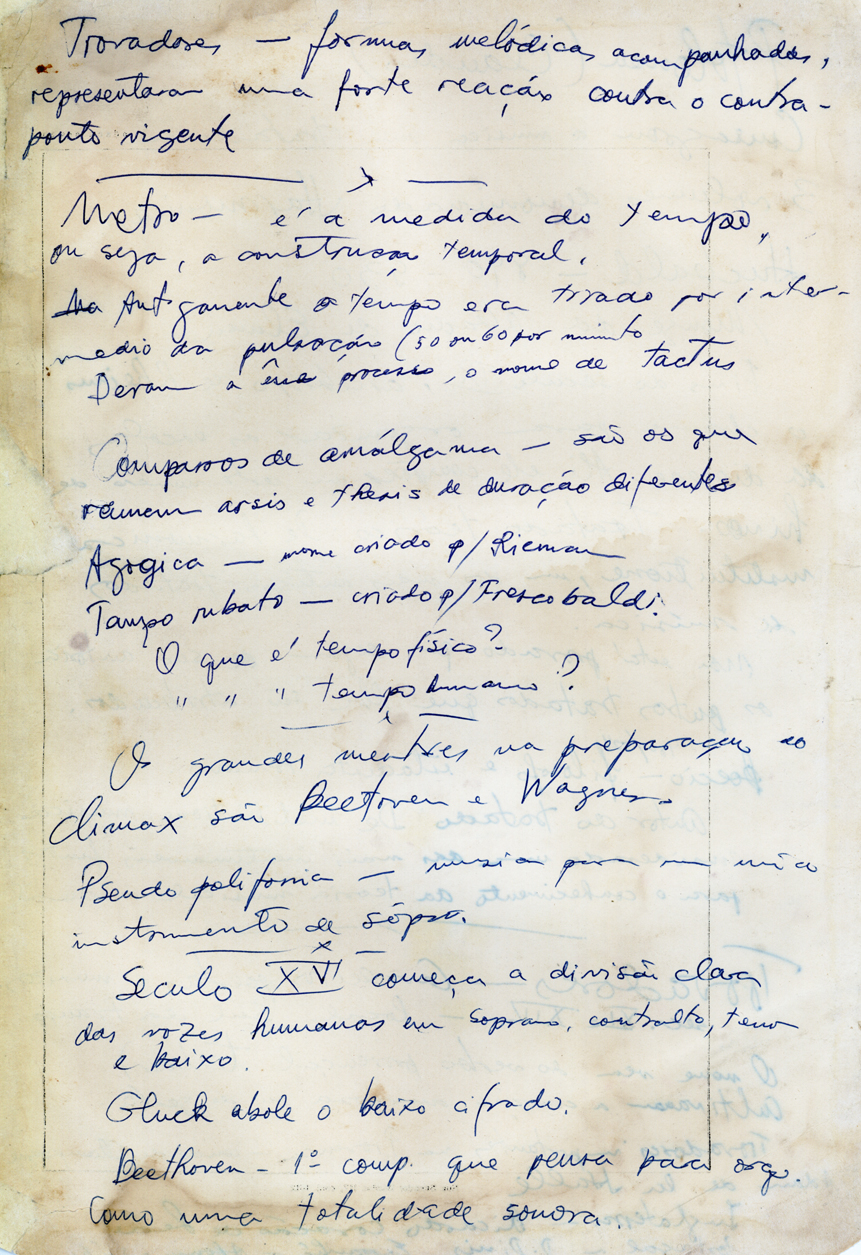 Trovadores — formas melódicas acompanhadas,
representaram uma forte reação contra o contra-
ponto vigente
Metro — é a medida do tempo,
ou seja, a construção temporal.
Antiganente o tempo era tirado por inter-
medio da pulsação (50 ou 60 por minuto
Deram a êsse processo, o nome de tactus
Compassos de amálgama — são os que
reunem arsis e thesis de duração diferentes
Agogica — nome criado p/ Rieman
Tempo rubato — criado p/ Frescobaldi.
O que é tempo físico?
" " " tempo humano?
Os grandes mestres na preparação ao
climax são Beethoven e Wagner.
Pseudo polifonia — musica para um unico
instrumento de sôpro.
Seculo XVI começa a divisão clara
das vozes humanas em soprano, contralto, tenor
e baixo.
Gluck abole o baixo cifrado.
Beethoven - 1º comp. que pensa para orqo.
Como uma totalidade sonora.